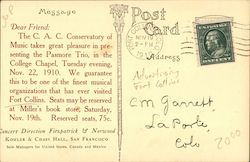 Message
Post
Card
Address
Dear Friend:
The C. A. C. Conservatory of
Music takes great pleasure in pre-
senting the Pasmore Trio, in the
College Chapel, Tuesday evening,
Nov. 22, 1910. We guarantee
this to be one of the finest musical
organizations that has ever visited
Fort Collins. Seats may be reserved
at Miller's book store, Saturday,
Nov. 19th. Reserved seats, 75c.
Concert Direction Fitzpatrick & Norwood
Kohler & Chase Hall, San Francisco
Sole Managers for United States, Canada and Mexico
NOV
PM
ONE CENT
Advertising
Fort Collins
E M Garrett,
La Porte,
Colo